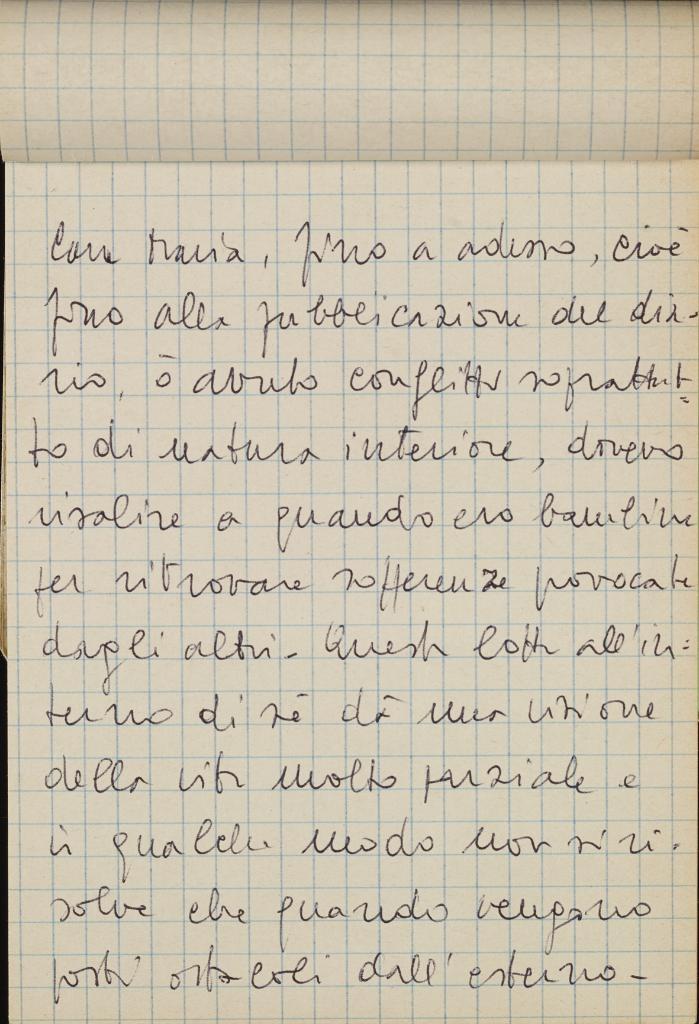 Cara Maria, fino a adesso, cioè
fino alla pubblicazione del dia-
rio, ò avuto conflitti soprattut=
to di natura interiore, dovevo
risalire a quando ero bambina
per ritrovare sofferenze provocate
dagli altri. Questa lotta all'in=
terno di sé dà una visione
della vita molto parziale e
in qualche modo non si ri.
solve che quando vengono
posti ostacoli dall'esterno-